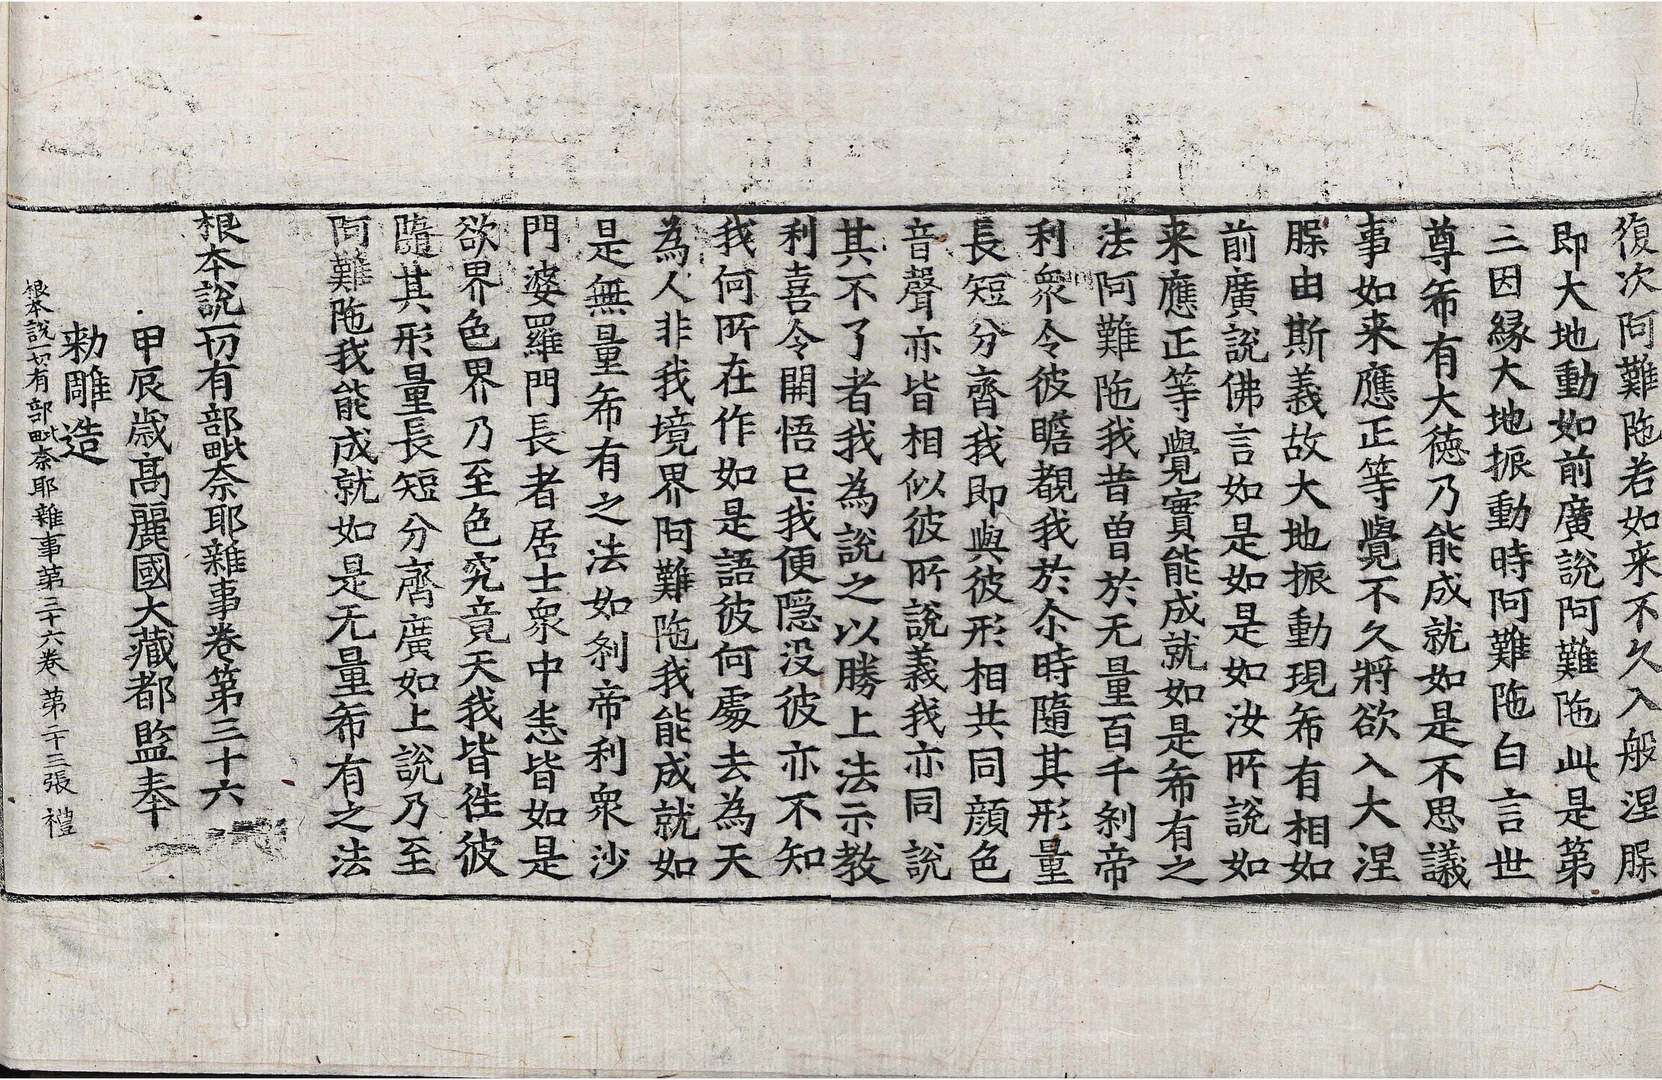 復次阿難陁若如来不久入般涅脲
即大地動如前廣說阿難陁此是第
三因縁大地振動時阿難陁白言世
尊希有大徳乃能成就如是不思議
事如来應正等覺不久將欲入大涅
脲由斯義故大地振動現希有相如
前廣說佛言如是如是如汝所說如
来應正等覺實能成就如是希有之
法阿難陁我昔曾於无量百千刹帝
利衆令彼瞻覩我於尒時隨其形量
長短分齊我即與彼形相共同顔色
音聲亦皆相似彼所說義我亦同說
其不了者我為說之以勝上法示教
利喜令開悟已我便隱没彼亦不知
我何所在作如是語彼何處去為天
為人非我境界阿難陁我能成就如
是無量希有之法如刹帝利衆沙
門婆羅門長者居士衆中悉皆如是
欲界色界乃至色究竟天我皆徃彼
隨其形量長短分齊廣如上說乃至
阿難陁我能成就如是无量希有之法
根本說一切有部毗奈耶雜事卷第三十六
甲辰歳高麗國大藏都監奉
勑雕造
根本說一切有部毗奈耶雜事第三十六卷 第二十三張 禮